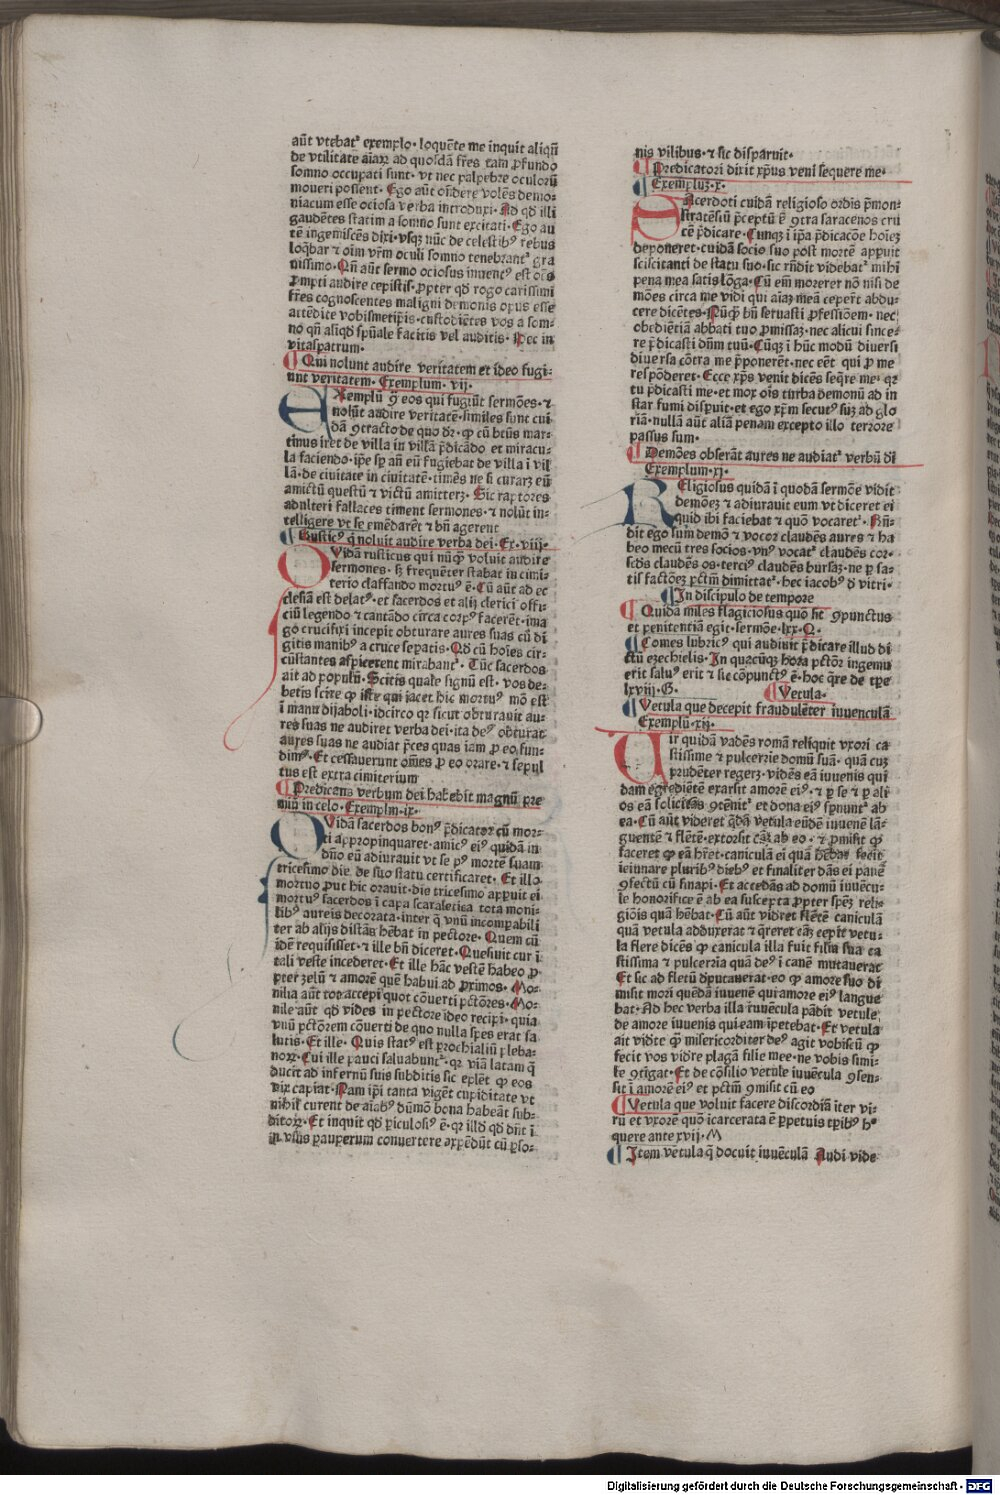 aūt vtebat᷑ exemplo· loquēte me inquit aliqñ
de vtilitate aīaꝝ ad quosdā fr̄es tam ꝓfundo
somno occupati sunt· vt nec palpebre oculorū
moueri possent· Ego aūt oñdere volēs demo-
niacum esse ociosa verba introduxi· Ad qd̄ illi
gaudētes statim a somno sunt excitati· Ego au
tē ingemiscēs dixi· vsqꝫ nūc de celestibꝰ rebus
loqbar ⁊ oīm vr̄m oculi somno tenebrant᷑ gra
uissimo· Qñ aūt sermo ociosus inuentꝰ est oēs
ꝓmpti audire cepistis· ꝓpter qd̄ rogo carissimi
fr̄es cognoscentes maligni demonis opus esse
attēdite vobismetip̄is· custodiētes vos a som-
no qñ aliqd̄ sp̄uale facitis vel auditis· Hec in
vitaspatrum·
¶ Qui nolunt audire veritatem et ideo fugi-
unt veritatem· Exemplum· vij·
Exemplū ꝯ̄ eos qui fugiūt sermōes· ⁊
nolūt audire veritatē· similes sunt cui
dā ꝯtracto de quo dr̄· ꝙ cū btūs mar-
tinus iret de villa in villā p̄dicādo et miracu-
la faciendo· ip̄e sp̄ añ eū fugiebat de villa ī vil
lā· de ciuitate in ciuitatē· timēs ne si curarꝫ eū
amictū questū ⁊ victū amitterꝫ· Sic raptores
adulteri fallaces timent sermones· ⁊ nolūt in-
telligere vt se emēdarēt ⁊ bñ agerent
¶ Rusticꝰ q̄ noluit audire verba dei· Ex· viij·
Quidā rusticus qui nūqꝫ voluit audire
sermones· sꝫ frequēter stabat in cimi-
terio claffando mortuꝰ ē· Cū aūt ad ec
clesiā est delatꝰ· et sacerdos et alij clerici offi-
ciū legendo ⁊ cantādo circa corpꝰ facerēt· ima
go crucifixi incepit obturare aures suas cū di
gitis manibꝰ a cruce sepatis· Qd̄ cū hoīes cir-
cūstantes aspicerent mirabant᷑· Tūc sacerdos
ait ad populū· Scitis quale signū est· vos de-
betis scire ꝙ iste qui jacet hic mortuꝰ mō est
ī manu dijaboli· idcirco qr sicut obturauit au-
res suas ne audiret verba dei· ita deꝰ obturat
aures suas ne audiat p̄ces quas iam ꝓ eo fun-
dimꝰ· Et cessauerunt om̄es ꝓ eo orare· ⁊ sepul
tus est extra cimiterium
¶ Predicans verbum dei habebit magnū pre
miū in celo· Exemplm· ix·
Quidā sacerdos bonꝰ p̄dicator cū mor-
ti appropinquaret· amicꝰ eiꝰ quidā in
dn̄o eū adiurauit vt se pꝰ mortē suam
tricesimo die de suo statu certificaret· Et illo
mortuo ꝓut hic orauit· die tricesimo apꝑuit ei
mortuꝰ sacerdos ī capa scaraletica tota moni-
libꝰ aureis decorata· inter q̄ vnū incomꝑabili
ter ab alijs distās hēbat in pectore· Quem cū
idē requisisset· ⁊ ille bñ diceret· Quesiuit cur ī
tali veste incederet· Et ille hāc vestē habeo ꝓ
pter zelū ⁊ amorē quē habui ad ꝓximos· Mo-
nilia aūt tot accepi quot cōuerti pctōres· Mo-
nile aūt qd̄ vides in pectore ideo recipi· quia
vnū pctōrem cōuerti de quo nulla sp̄es erat sa
lutis· Et ille· Quis statꝰ est ꝑochialiū pleba-
noꝝ· Cui ille pauci saluabunt᷑· qr viā latam q̄
ducit ad infernū suis subditis sic eplēt ꝙ eos
vix capiat· Nam ip̄i tanta vigēt cupiditate vt
nihil curent de aīabꝰ dūmō bona habeāt sub-
ditoꝝ· Et inquit qd̄ piculosiꝰ ē· qr illd̄ qd̄ dn̄t ī
in vsus pauperum conuertere expēdūt cū ꝑso-
nis vilibus· ⁊ sic disparuit·
¶ Predicatori dixit xp̄us veni sequere me·
¶ Exempluꝫ· x·
Sacerdoti cuidā religioso ordīs p̄mon-
stratēsiū p̄ceptū ē ꝯtra saracenos cru
cē p̄dicare· Cunqꝫ ī ip̄a p̄dicacōe hoīeꝫ
deponeret· cuidā socio suo post mortē appuit
sciscitanti de statu suo· sic rn̄dit videbat᷑ mihi
pena mea satis lōga· Cū em̄ morerer nō nisi de
mōes circa me vidi qui aīaꝫ meā cepert̄ abdu-
cere dicētes· Nūqꝫ bn̄ seruasti ꝓfessiōem· nec
obediētiā abbati tuo ꝓmissaꝫ· nec alicui since-
re p̄dicasti dn̄m tuū· Cūqꝫ ī hūc modū diuersi
diuersa cōtra me p̄ponerēt· nec eēt qui ꝓ me
respōderet· Ecce xp̄s venit dicēs seq̄re me· qr
tu p̄dicasti me· et mox oīs turba demonū ad in
star fumi disꝑuit· et ego xp̄m secutꝰ suꝫ ad glo
riā· nullā aūt aliā penam excepto illo terrore
passus sum·
¶ Demōes obserāt aures ne audiat᷑ verbū di
Exemplum· xj·
Religiosus quidā ī quodā sermōe vidit
demōeꝫ ⁊ adiurauit eum vt diceret ei
quid ibi faciebat ⁊ quō vocaret᷑· Rn̄-
dit ego sum demō ⁊ vocor claudēs aures ⁊ ha
beo mecū tres socios· vnꝰ vocat᷑ claudēs cor·
scd̄s claudēs os· terciꝰ claudēs bursaꝫ· ne ꝑ sa-
tisfactōeꝫ pctm̄ dimittat᷑· hec iacobꝰ d̄ vitri·
¶ In discipulo de tempore
¶ Quidā miles flagiciosus quō sit ꝯpunctus
et penitentiā egit· sermōe· lxx· Q·
¶ Comes lubricꝰ qui audiuit p̄dicare illud di
ctū ezechielis· In quacūqꝫ hora pctōr ingemu
erit saluꝰ erit ⁊ sic cōpunctꝰ ē· hoc q̄re de tꝑe
lxviij· G·
¶ Vetula·
¶ Vetula que decepit fraudulēter iuuenculā
Exemplū· xij·
Vir quidā vadēs romā reliquit vxori ca
stissime ⁊ pulcerrie domū suā· quā cuꝫ
prudēter regerꝫ· vidēs eā iuuenis qui
dam egrediētē exarsit amorē eiꝰ· ⁊ ꝑ se ⁊ ꝑ ali
os eā sollicitās ꝯtēnit᷑ et dona eiꝰ sꝑnunt᷑ ab
ea· Cū aūt videret q̄dā vetula eūdē iuuenē lā-
guentē ⁊ flētē· extorsit cāꝫ ab eo· ⁊ ꝓmisit ꝙ
faceret ꝙ eā hr̄et· caniculā ei quā hēbat fecit
ieiunare pluribꝰ diebꝰ et finaliter dās ei panē
ꝯfectū cū sinapi· Et accedās ad domū iuuēcu-
le honorifice ē ab ea suscepta ꝓpter sp̄eꝫ reli-
giōis quā hēbat· Cū aūt vidret flētē caniculā
quā vetula adduxerat ⁊ q̄reret cāꝫ cepit vetu-
la flere dicēs ꝙ canicula illa fuit filia sua ca
stissima ⁊ pulcerria quā deꝰ ī canē mutauerat
Et sic ad fletū dputauerat· eo ꝙ amore suo di
misit mori quēdā iuuenē qui amore eiꝰ langue
bat· Ad hec verba illa iuuēcula pādit vetule
de amore iuuenis qui eam īpetebat· Et vetula
ait vidēte ꝙ misericorditer deꝰ agit vobiscū ꝙ
fecit vos vidre plagā filie mee· ne vobis simi-
le ꝯtīgat· Et de cōsilio vetule iuuēcula ꝯsen-
sit ī amorē eiꝰ et pctm̄ ꝯmisit cū eo
¶ Vetula que voluit facere discordiā īter vi-
rū et vxorē quō icarcerata ē ꝑpetuis tꝑibꝰ hᵒ
quere ante xvij· M
¶ Item vetula q̄ docuit iuuēculā Audi vide
Digitalisierung gefördert durch die Deutsche Forschungsgemeinschaft - DFG